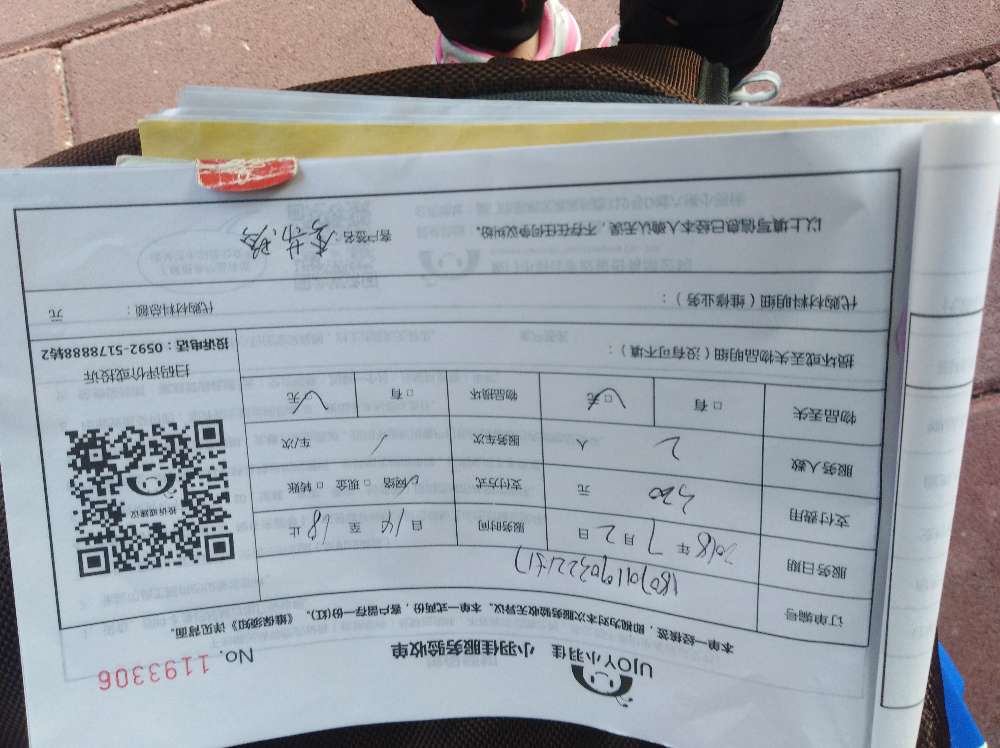 UJOY小羽佳 小羽佳服务验收单 No. 1193306
本单一经核签，即视为对本次服务验收无异议。本单一式两份，客户留存一份(红)。《维保须知》详见背面。
订单编号
服务日期 2018 年 7 月 2 日 服务时间 自 14 至 18 止
支付费用 320 元 支付方式 □网络 □现金 □转账
服务人数 2 人 服务车次 车/次
物品丢失 □有 □无 物品损坏 □有 □无
损坏或丢失物品明细（没有可不填）：
扫码评价或投诉
投诉电话：0592-5178888转2
投诉或建议
代购材料明细（维修业务）： 代购材料总额： 元
以上填写信息已经本人确认无误，不存在任何争议纠纷。 客户签名：